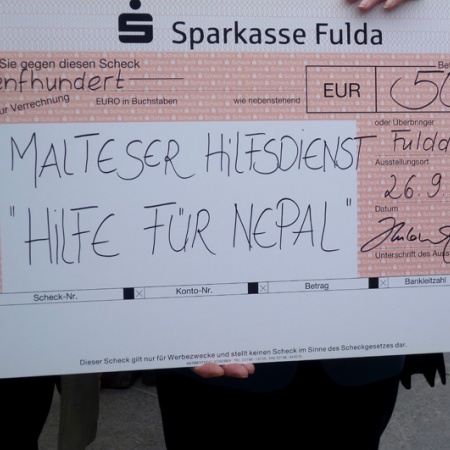 Sparkasse Fulda
Sie gegen diesen Scheck
enfhundert
ur Verrechnung EURO in Buchstaben wie nebenstehend EUR 50
oder Überbringer
MALTESER HILFSDIENST Fulda
Ausstellungsort
26.9.
"HILFE FÜR NEPAL" Datum
Unterschrift des Auss
Scheck-Nr. Konto-Nr. Betrag Bankleitzahl
Dieser Scheck gilt nur für Werbezwecke und stellt keinen Scheck im Sinne des Scheckgesetzes dar.